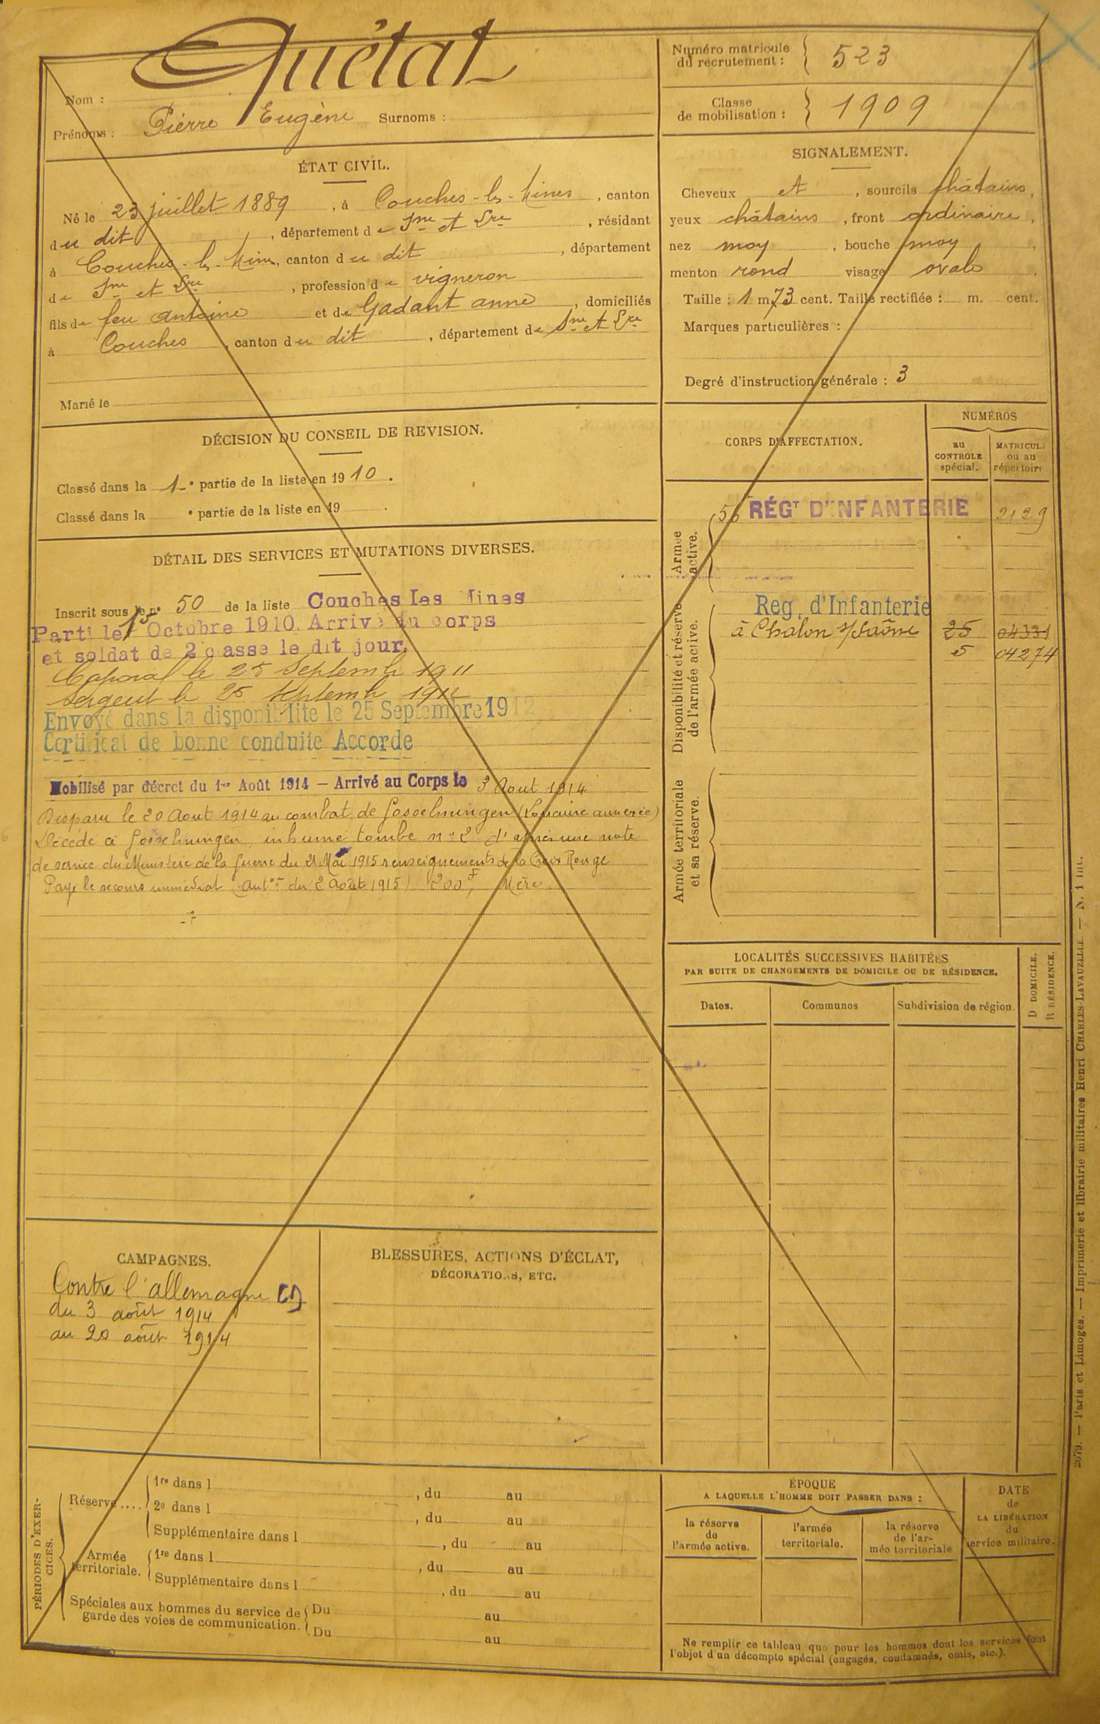 Nom : Quétat
Prénoms : Pierre Eugène Surnoms :
Numéro matricule du recrutement : 523
Classe de mobilisation : 1909
ÉTAT CIVIL.
Né le 23 juillet 1889, à Couches-les-Mines, canton
du dit, département de Sne et Lre, résidant
à Couches-les-Mines, canton du dit, département
de Sne et Lre, profession de vigneron
fils de feu Antoine et de Gadant anne, domiciliés
à Couches, canton du dit, département de Sne et Lre
Marié le
SIGNALEMENT.
Cheveux et, sourcils châtains,
yeux châtains, front ordinaire,
nez moy, bouche moy,
menton rond visage ovale.
Taille : 1 m 73 cent. Taille rectifiée : m. cent.
Marques particulières :
Degré d'instruction générale : 3
DÉCISION DU CONSEIL DE REVISION.
Classé dans la 1re partie de la liste en 1910.
Classé dans la e partie de la liste en 19 .
DÉTAIL DES SERVICES ET MUTATIONS DIVERSES.
Inscrit sous le n° 50 de la liste Couches les Mines
Parti le 1er Octobre 1910. Arrivé au corps
et soldat de 2 classe le dit jour.
Caporal le 25 Septembre 1911
Sergent le 25 Septembre 1911
Envoyé dans la disponibilité le 25 Septembre 1912
Certificat de bonne conduite Accordé
Mobilisé par décret du 1er Août 1914 – Arrivé au Corps le 3 Aout 1914
Disparu le 20 Aout 1914 au combat de Gosselmingen (Lorraine annexée)
Décédé à Gosselmingen, inhumé tombe n° 2 d'après une note
de service du Ministère de la Guerre du 21 Mai 1915 renseignements de la Croix Rouge
Payé le secours immédiat (autn du 2 Août 1915) 200f, Mère
CORPS D'AFFECTATION.
NUMÉROS
au CONTRÔLE spécial.
MATRICULE ou au répertoire
Armée active.
56 RÉGT D'INFANTERIE 2129
Disponibilité et réserve de l'armée active.
Reg. d'Infanterie
à Chalon s/Saône 25 04331
5 04274
Armée territoriale et sa réserve.
LOCALITÉS SUCCESSIVES HABITÉES
PAR SUITE DE CHANGEMENTS DE DOMICILE OU DE RÉSIDENCE.
Dates.
Communes
Subdivision de région.
D DOMICILE.
R RÉSIDENCE.
CAMPAGNES.
Contre l'allemagne
du 3 août 1914
au 20 août 1914
BLESSURES, ACTIONS D'ÉCLAT,
DÉCORATIONS, ETC.
PÉRIODES D'EXERCICES.
Réserve....
1re dans l , du au
2e dans l , du au
Supplémentaire dans l , du au
Armée territoriale.
1re dans l , du au
Supplémentaire dans l , du au
Spéciales aux hommes du service de garde des voies de communication.
Du au
Du au
ÉPOQUE
A LAQUELLE L'HOMME DOIT PASSER DANS :
la réserve de l'armée active.
l'armée territoriale.
la réserve de l'armée territoriale
DATE de LA LIBÉRATION du service militaire.
Ne remplir ce tableau que pour les hommes dont les services font
l'objet d'un décompte spécial (engagés, condamnés, omis, etc.).
2679. — Paris et Limoges. — Imprimerie et librairie militaires Henri CHARLES-LAVAUZELLE. — N. 1 int.